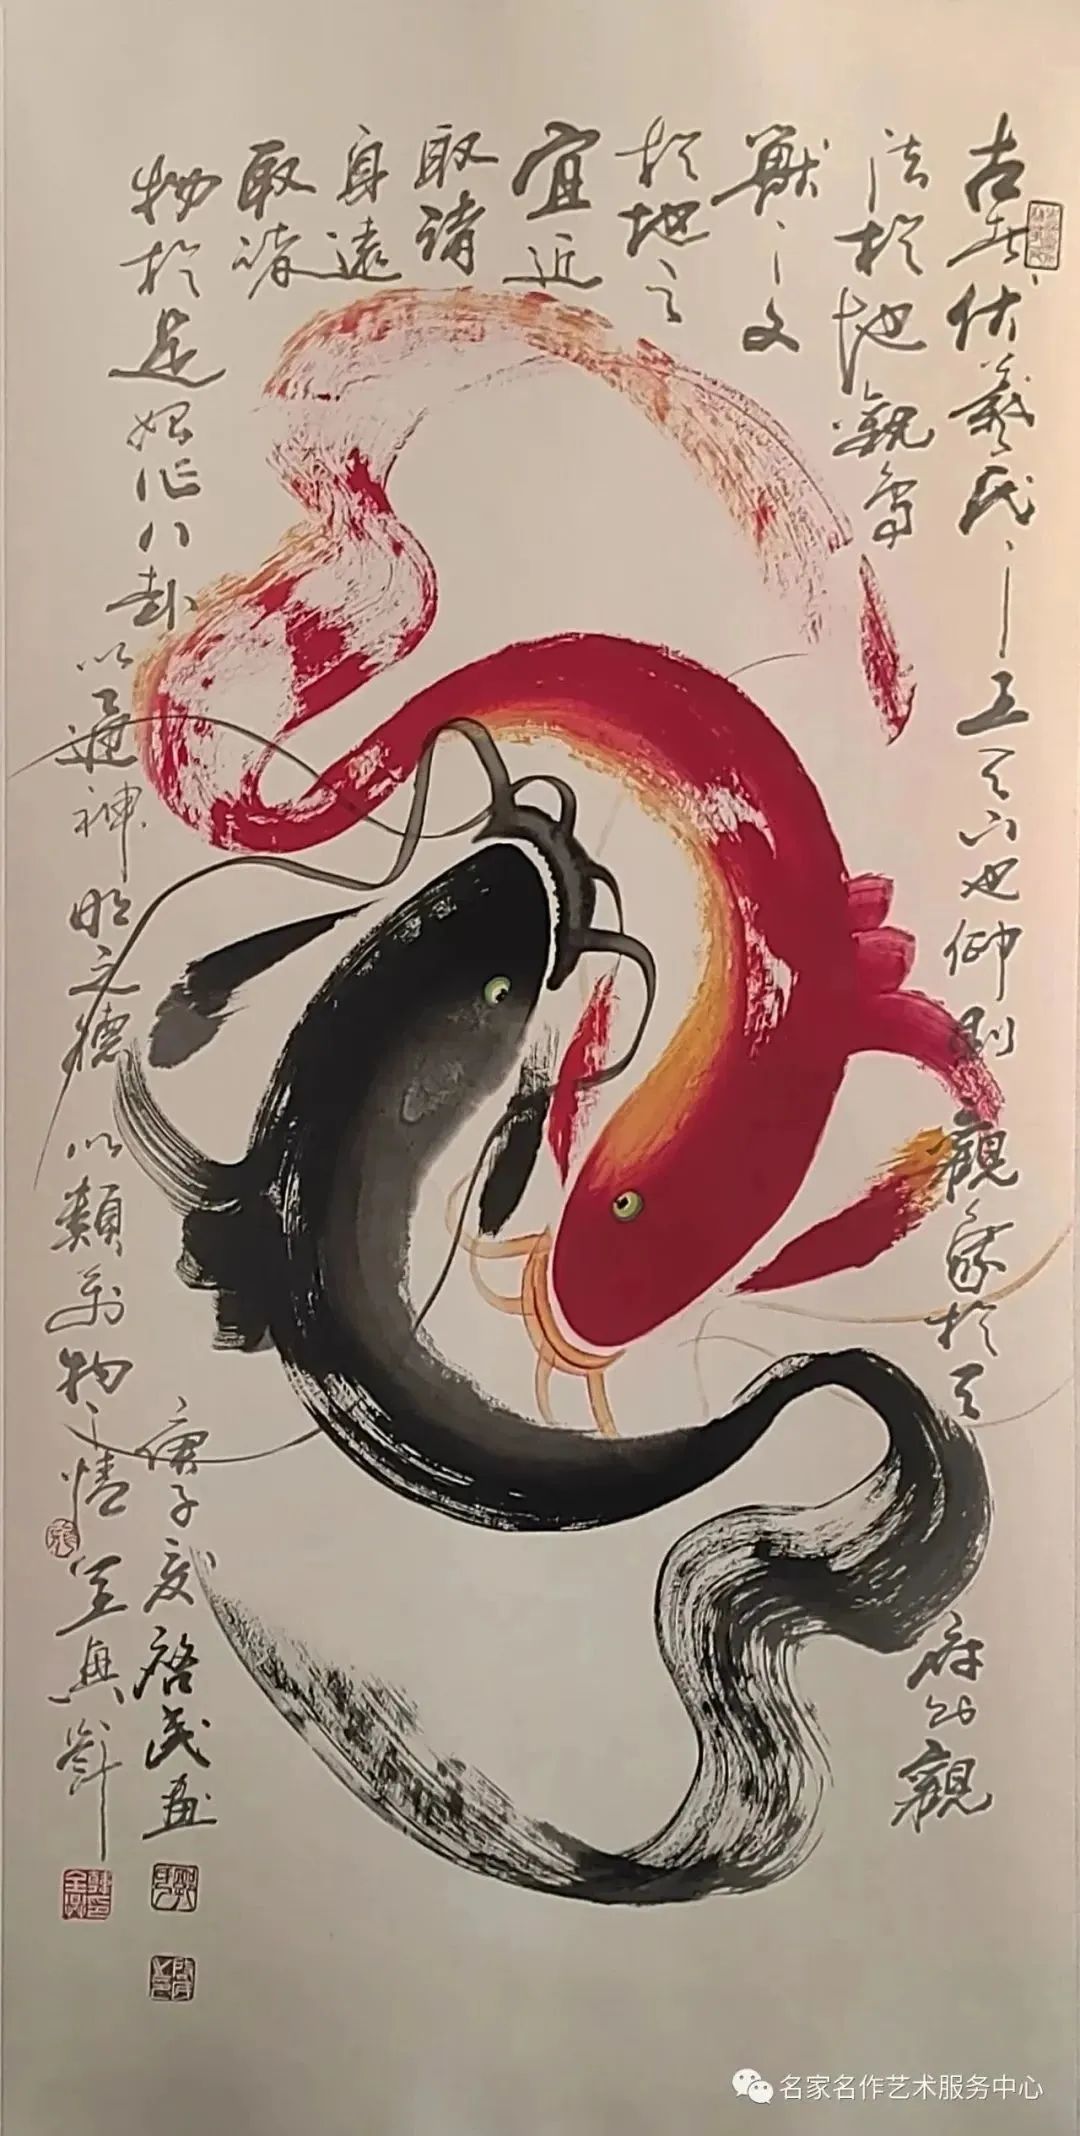 古者伏羲氏之王天下也仰則觀象於天
府則觀
法於地觀鳥
獸之文
於地之
宜近
取諸
身遠
取諸
物於是始作八卦以通神明之德以類萬物之情
庚子夏启民畫
名家名作艺术服务中心